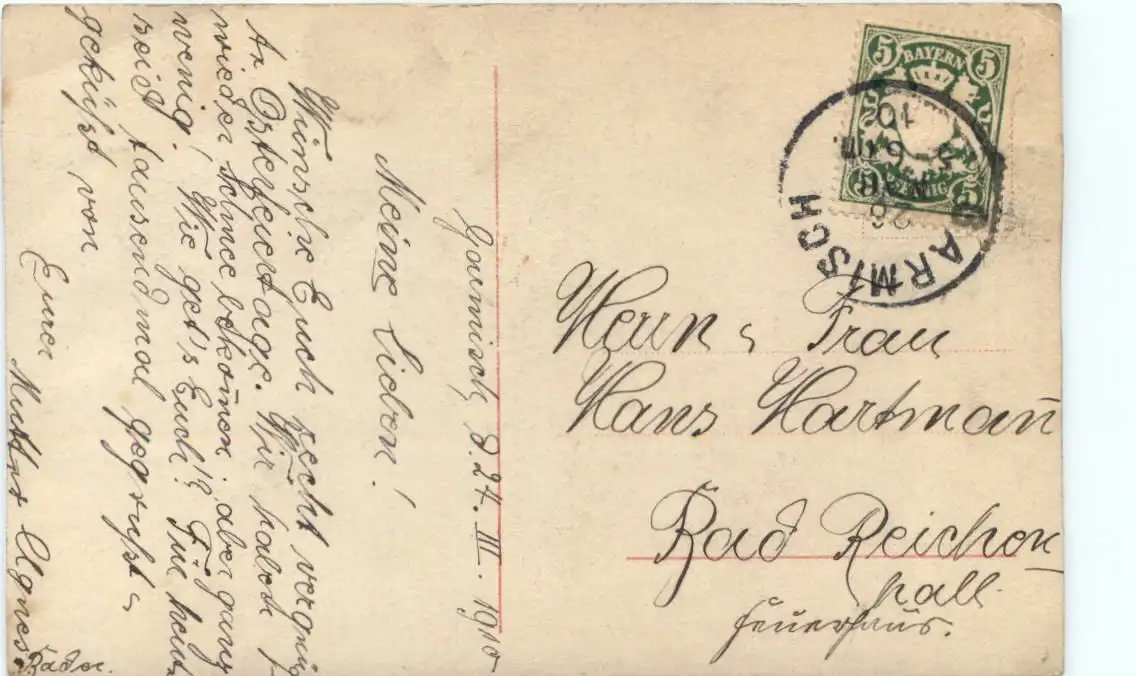 Garmisch, d. 24. III. 1910
Meine lieben!
Wünsche Euch recht vergnüg-
te Osterfeiertage. Wir haben
wieder Schnee bekom̄en, aber ganz
wenig! Wie get's Euch!? Für heute
seid tausendmal gegrüßt u
geküßt von
Eurer
Mutter Agnes.
Bader.
5 BAYERN 5
5 PFENNIG 5
GARMISCH
26
MAR
10
Herrn u Frau
Hans Hartman̄
Bad Reichen
hall.
Feuerhaus.